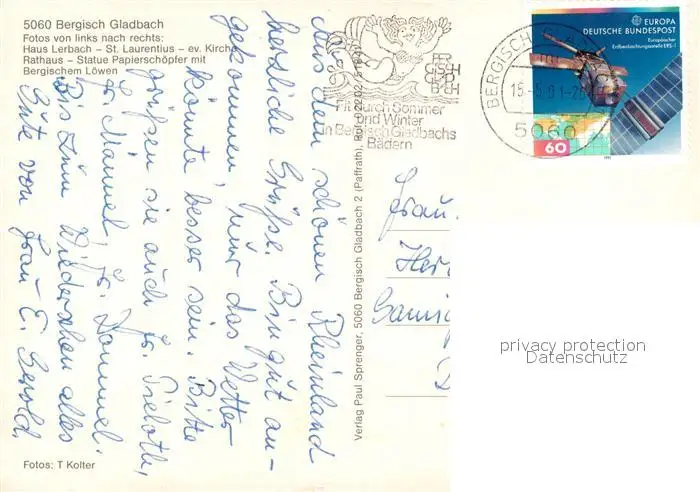 5060 Bergisch Gladbach
Fotos von links nach rechts:
Haus Lerbach – St. Laurentius – ev. Kirche
Rathaus – Statue Papierschöpfer mit
Bergischem Löwen
Aus dem schönen Rheinland
herzliche Grüße. Bin gut an-
gekommen, nur das Wetter
könnte besser sein. Bitte
grüßen sie auch Fr.
Fr.
Bis zum Wiedersehen alles
Gute von Frau E.
Fotos: T Kolter
Verlag Paul Sprenger, 5060 Bergisch Gladbach 2 (Paffrath), Ruf 0 22 02
Fit durch Sommer
und Winter
in Bergisch Gladbachs
Bädern
BERGISCH
5060
EUROPA
DEUTSCHE BUNDESPOST
Europäischer
Erdbeobachtungssatellit ERS-1
60
1991
Frau
privacy protection
Datenschutz